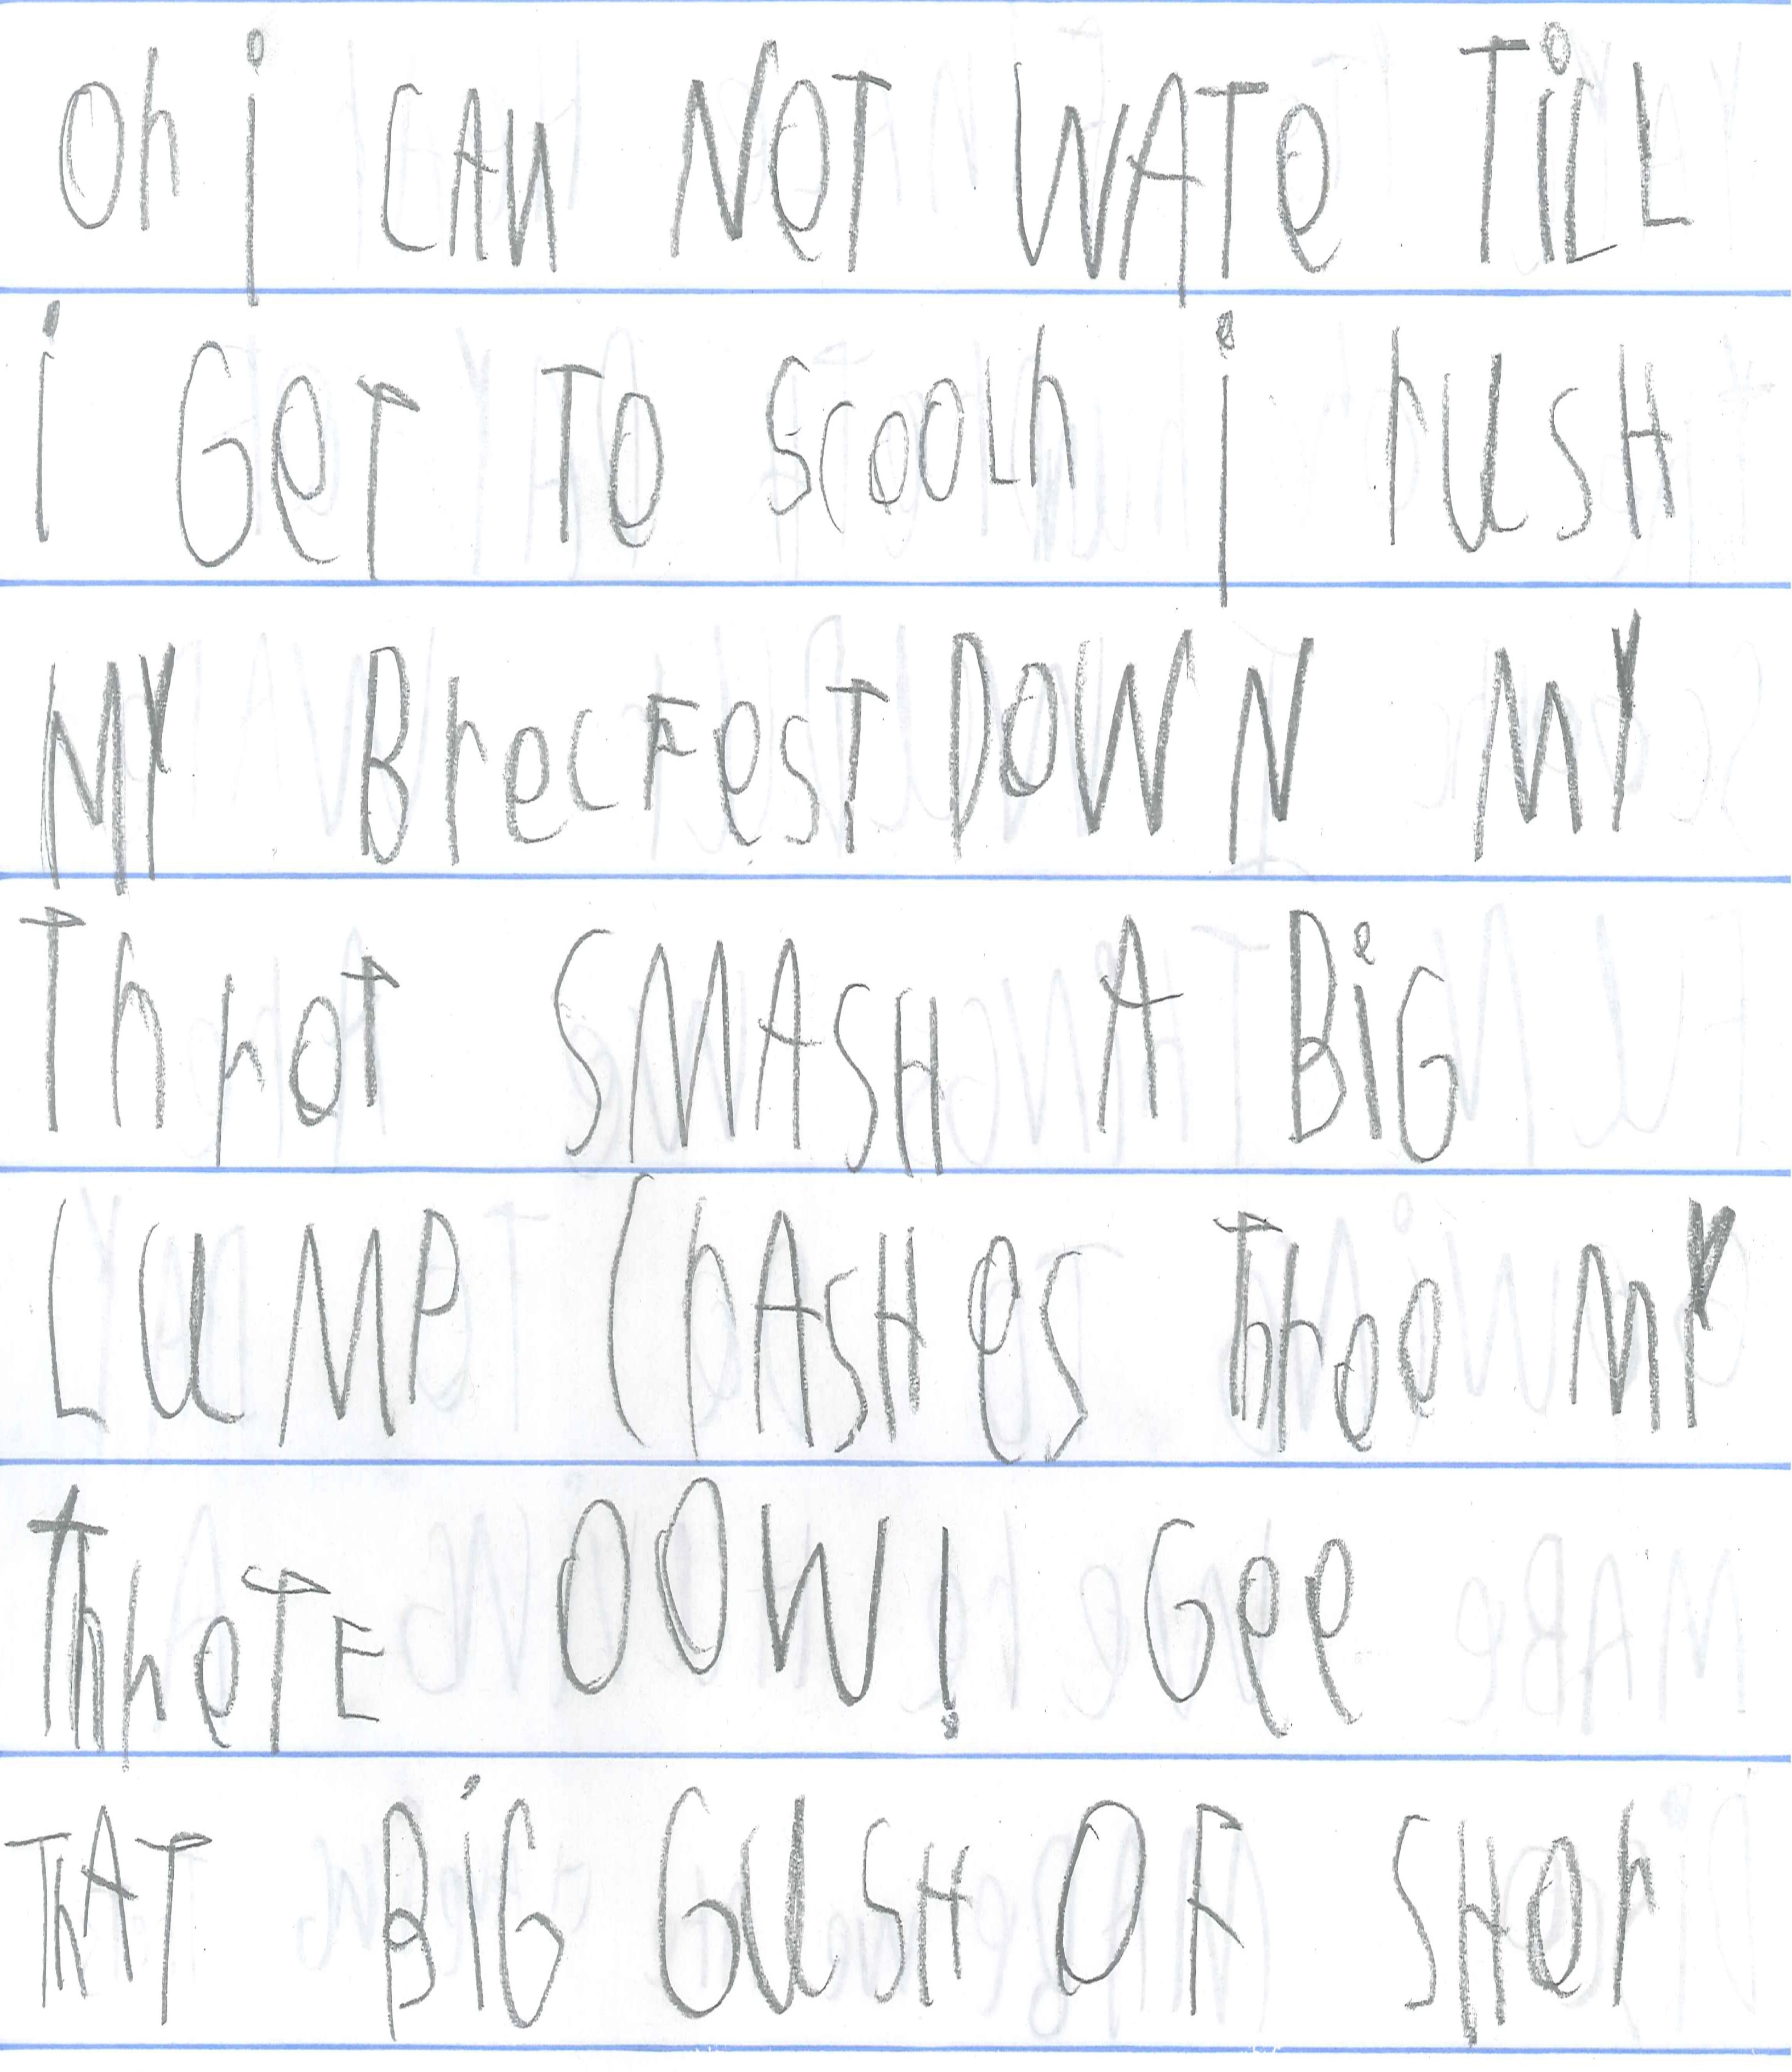 Oh i CAN NOT WATe TiLL
i GeT TO ScOOLh i rUSH
MY BrecFesT DOWN MY
Throt SMASH A BiG
LUMP CrASHes Throo MY
ThroTE OOW! Gee
ThAT BiG GUSH OF SHOr